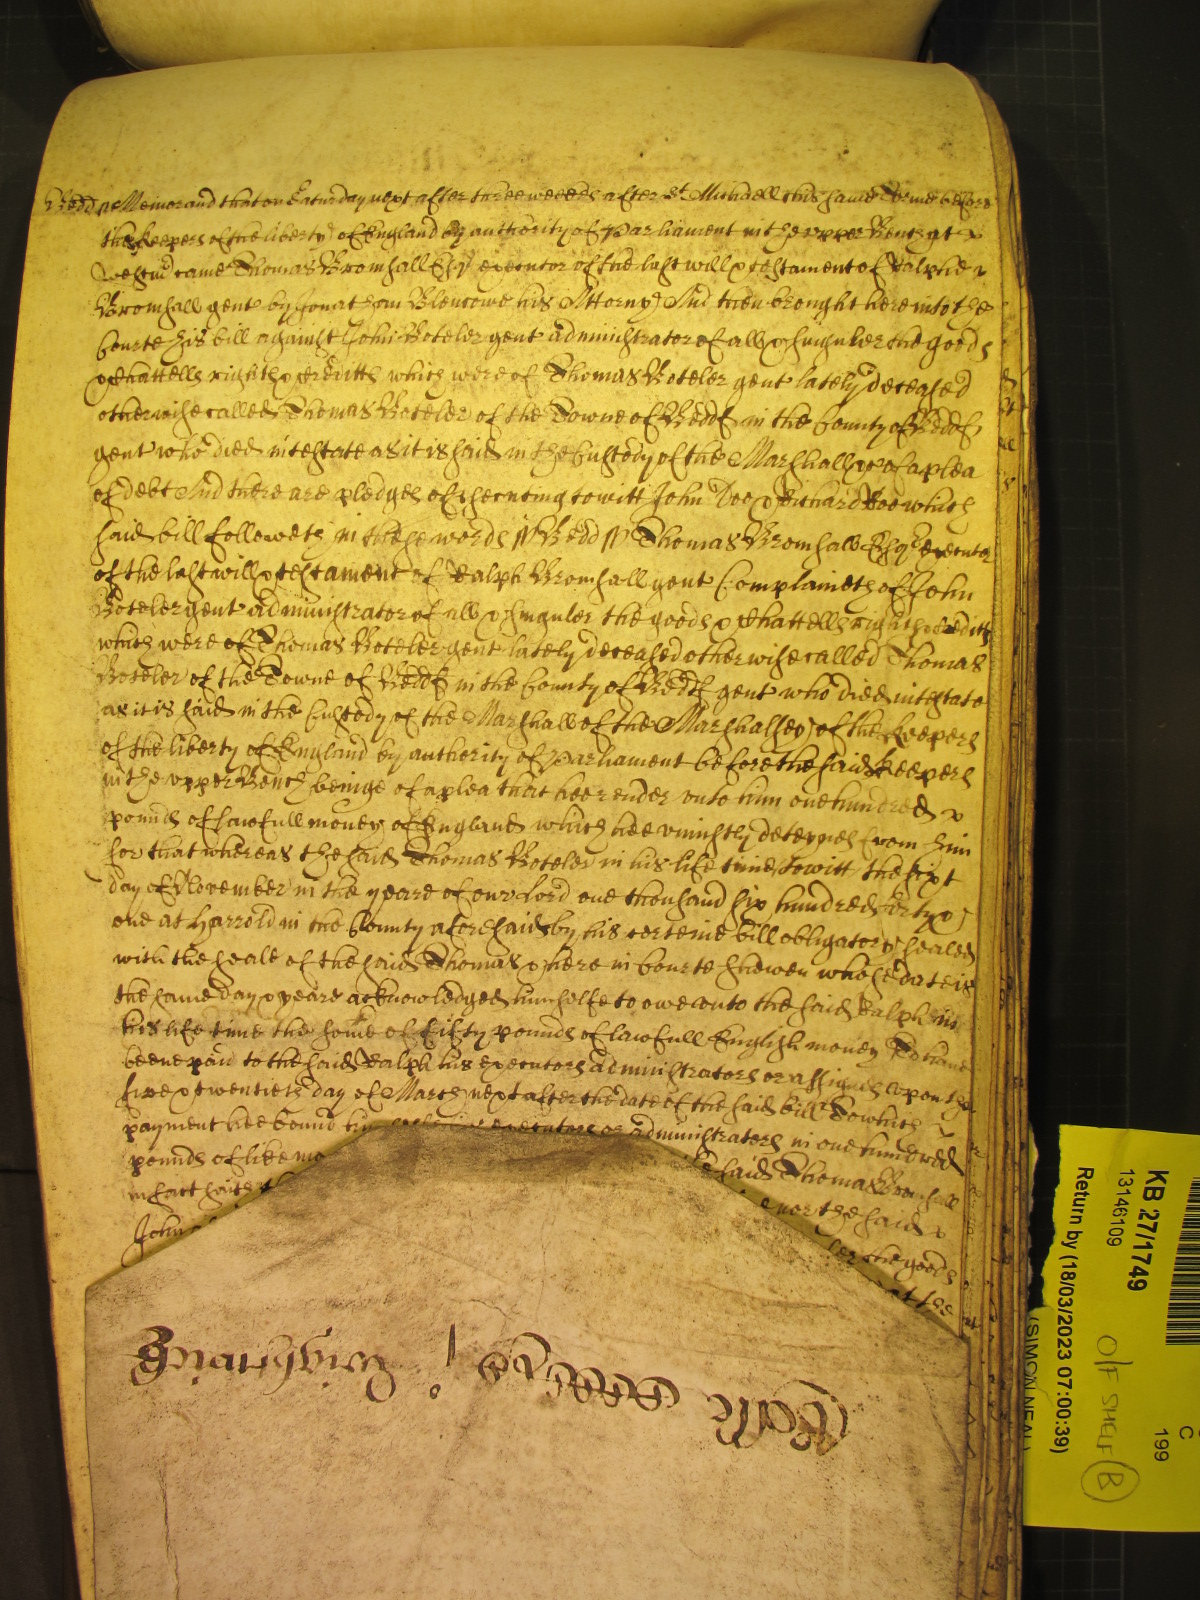 Bedd ss Memorand that on Saturday next after three weekes after St Michaell this same Terme before
the keepers of the liberty of England by authority of Parliament in the upper Bench at
Westmr came Thomas Bromsall Esqr executor of the last will & testament of Ralphe
Bromsall gent by Jonathan Blencowe his Attorny And then brought here into the
Courte his bill against John Boteler gent administrator of all & singuler the goods
& Chattells rights & creditts which were of Thomas Boteler gent lately deceased
otherwise called Thomas Boteler of the Towne of Bedd in the County of Bedd
gent who died intestate as it is said in the Custody of the Marshall &c of a plea
of debt And there are pledges of prosecuting to witt John Doe & Richard Roe which
said bill followeth in these words ss Bedd ss Thomas Bromsall Esqr executor
of the last will & testament of Ralph Bromsall gent Complaineth of John
Boteler gent administrator of all & singuler the goods & Chattells rights & creditts
which were of Thomas Boteler gent lately deceased otherwise called Thomas
Boteler of the Towne of Bedd in the County of Bedd gent who died intestate
as it is said in the Custody of the Marshall of the Marshallsey of the keepers
of the liberty of England by authority of Parliament before the said keepers
in the upper Bench beinge of a plea that hee render unto him one hundred
pounds of lawfull money of England which hee uniustly deteynes from him
for that whereas the said Thomas Boteler in his life time to witt the sixt
day of November in the yeare of our Lord one thousand six hundred forty &
one at Harrold in the County aforesaid by his certeine bill obligatory sealed
with the seale of the said Thomas & here in Courte shewen whose date is
the same day & yeare acknowledged himselfe to owe unto the said Ralph in
his life time the some of fifty pounds of lawfull English money To have
beene paid to the said Ralph his executors administrators or assignes upon the
five & twentieth day of March next after the date of the said bill To which
payment hee bound executors or administrators in one hundred
pounds of like mo said Thomas Bromsall
in fact saith nor the said
John the goods
KB 27/1749
13146109
Return by (18/03/2023 07:00:39)
(SIMON NEAL)
O/F SHELF B
C
199